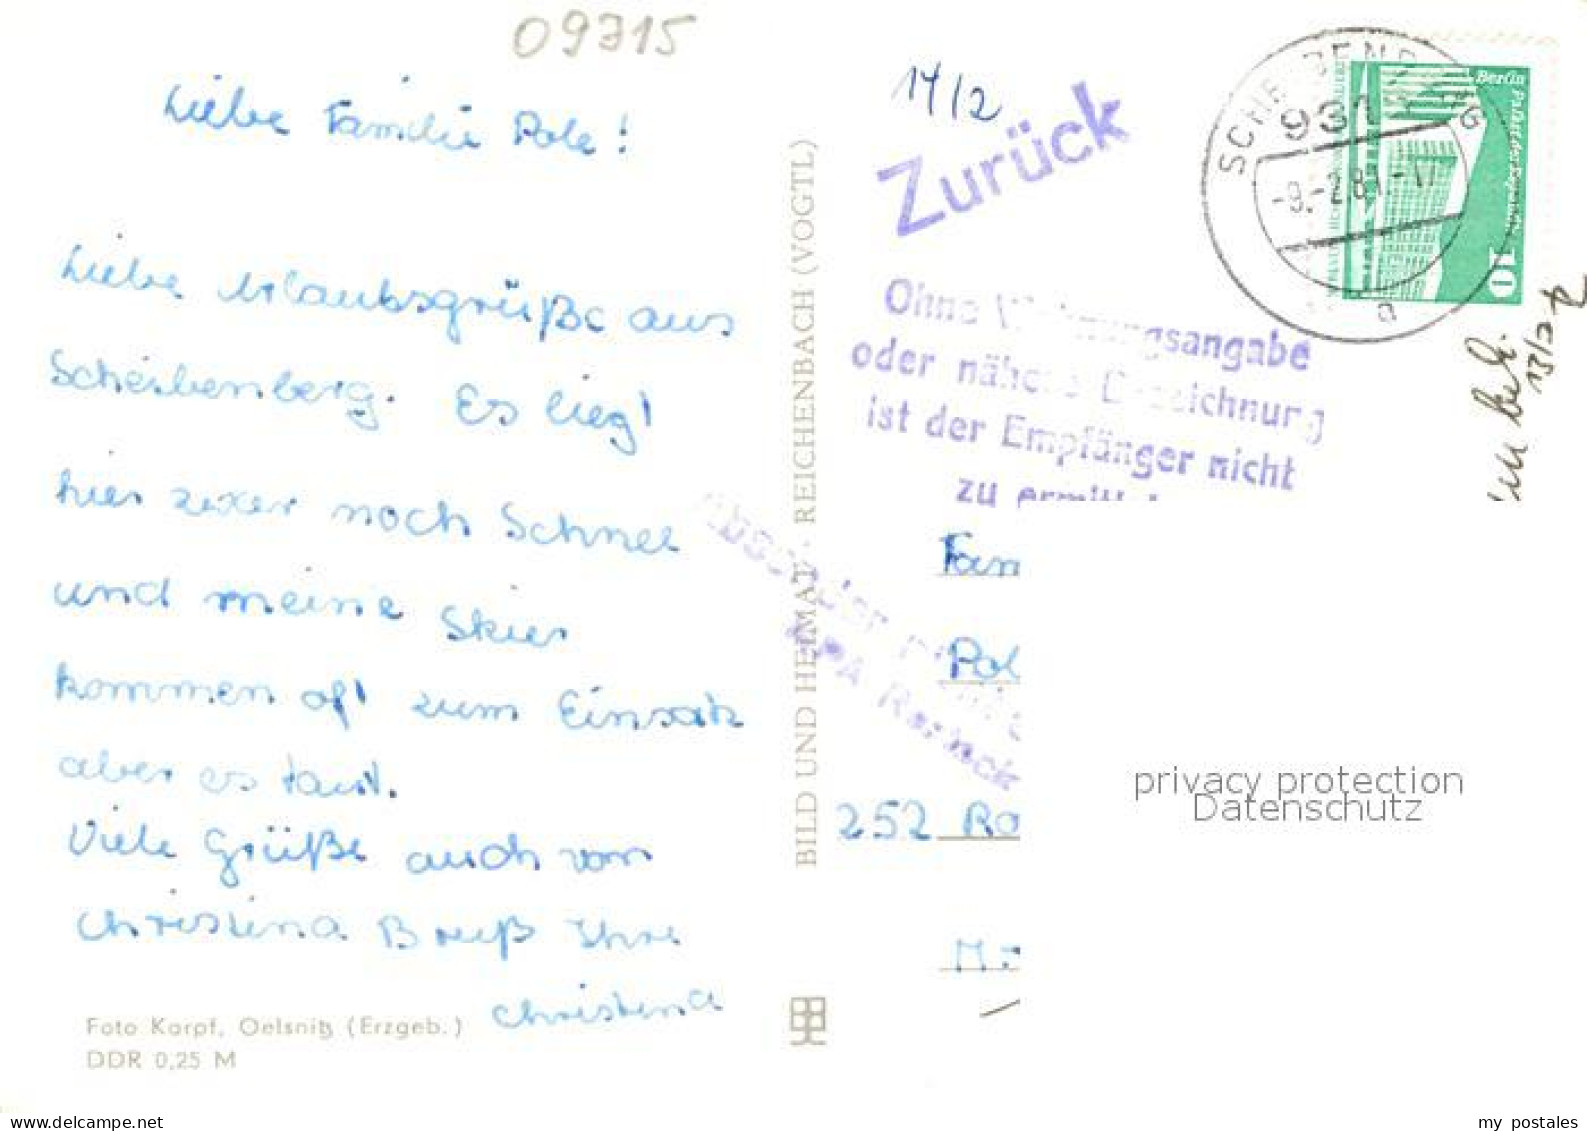 09315
Liebe Familie Pole!
Liebe Urlaubsgrüße aus
Scheibenberg. Es liegt
hier zwar noch Schnee
und meine Skier
kommen oft zum Einsatz
aber es taut.
Viele Grüße auch von
Christina Breuß Ihre
Christina
Foto Karpf, Oelsnitz (Erzgeb.)
DDR 0,25 M
BILD UND HEIMAT · REICHENBACH (VOGTL)
17/2
Zurück
Ohne Wohnungsangabe
oder nähere Bezeichnung
ist der Empfänger nicht
zu
931
-9.-2.81.-17
a
Berlin Palasthotel
10
13/2
Fam
Pol
252 Ro
privacy protection
Datenschutz
my postales